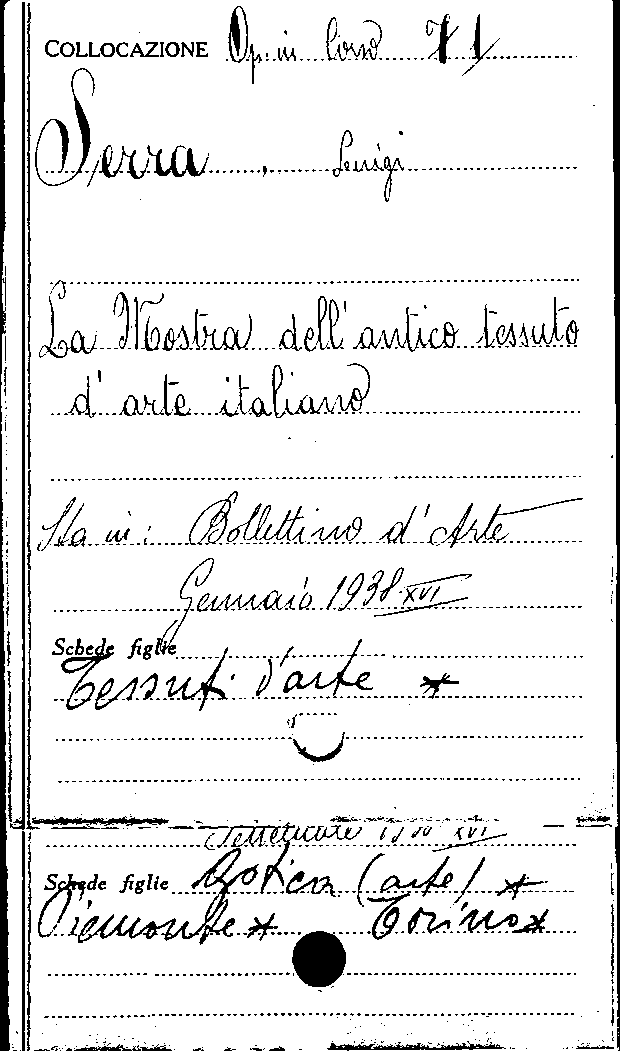 COLLOCAZIONE Op. in Corso 71
Serra, Luigi
La Mostra dell'antico tessuto
d'arte italiano
Sta in: Bollettino d'Arte
Gennaio 1938 XVI
Schede figlie
Tessuti d'arte *
Settembre XVI
Schede figlie Gotica (arte) *
Piemonte * Torino *